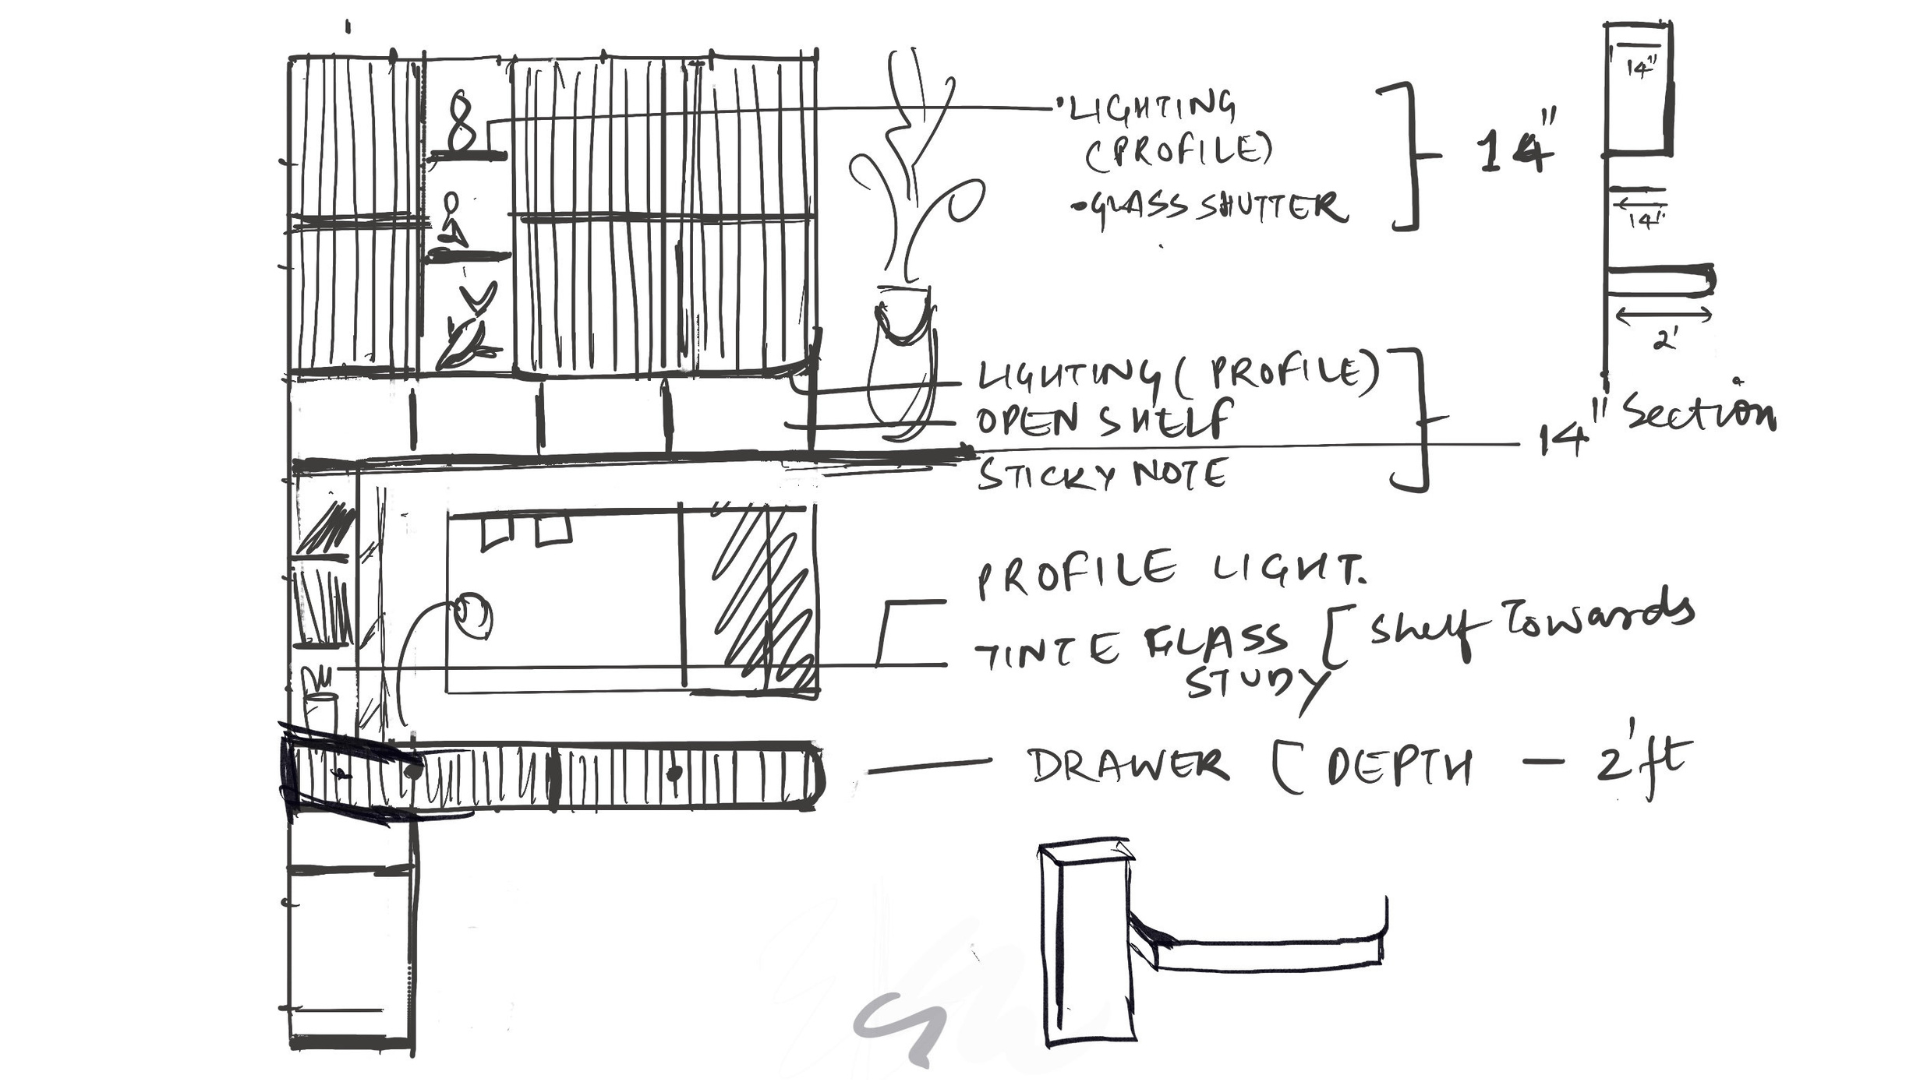 •LIGHTING
(PROFILE)
•GLASS SHUTTER
14"
14"
14"
2'
LIGHTING ( PROFILE)
OPEN SHELF
STICKY NOTE
14"
Section
PROFILE LIGHT.
TINTE GLASS [ Shelf Towards
STUDY
DRAWER [ DEPTH — 2'ft